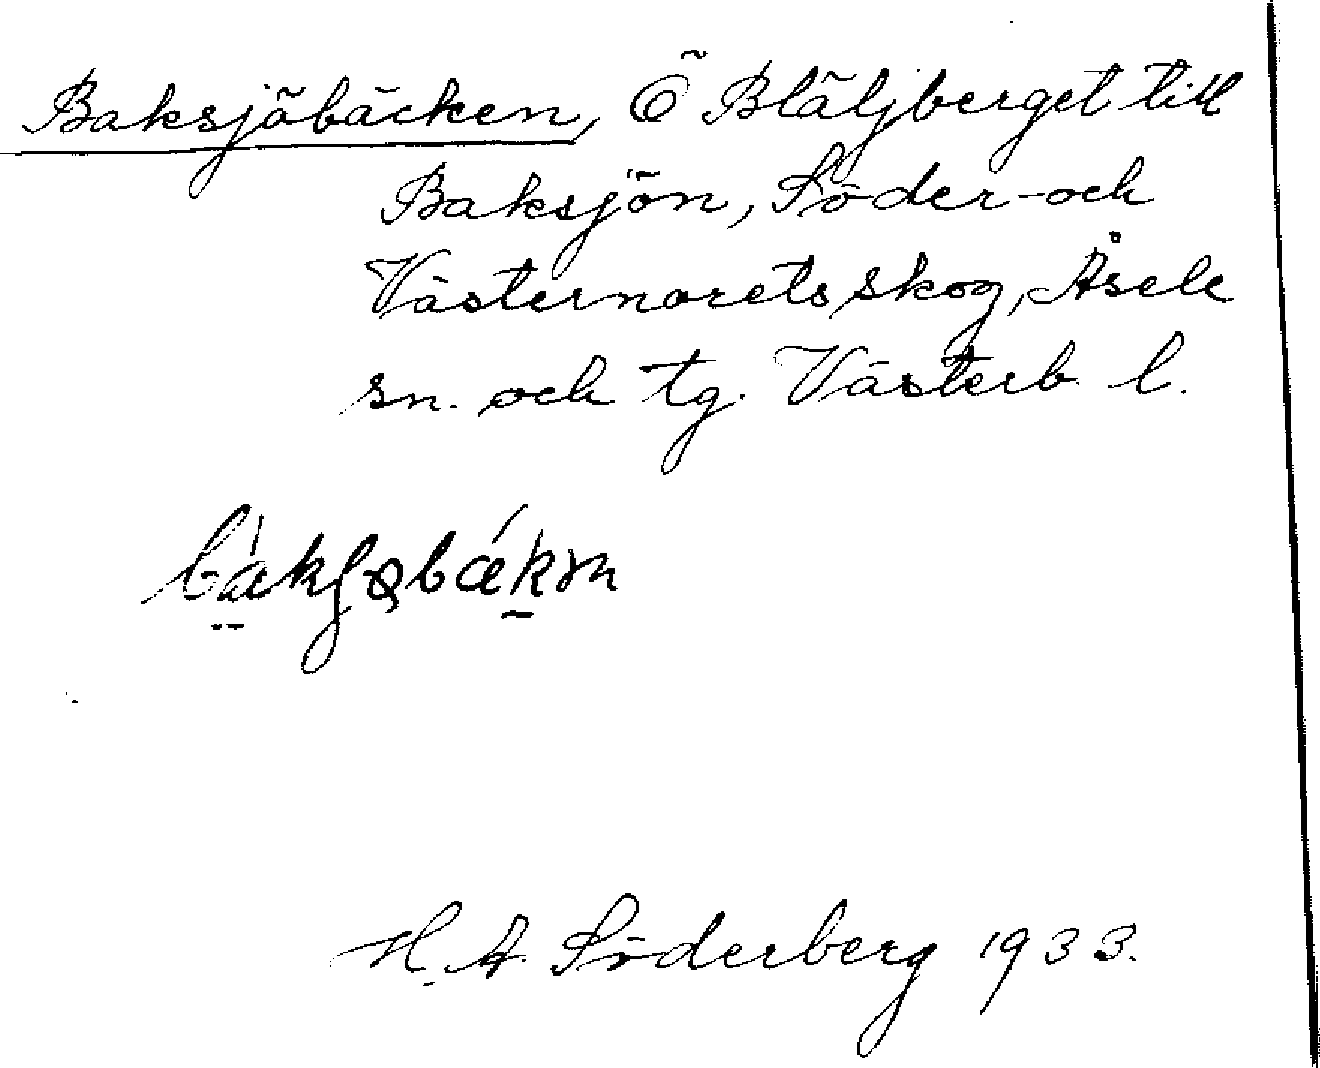 Baksjöbäcken, Ö Blåljberget till
Baksjön, Söder- och
Västernorets skog, Åsele
sn. och tg. Västerb. l.
H. A. Söderberg 1933.